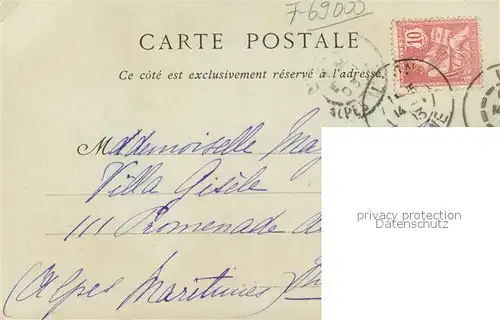 F-69000
CARTE POSTALE
10
Ce côté est exclusivement réservé à l'adresse.
ALPES
Mademoiselle
Villa Gisèle
privacy protection
Datenschutz
111 Promenade
(Alpes Maritimes)